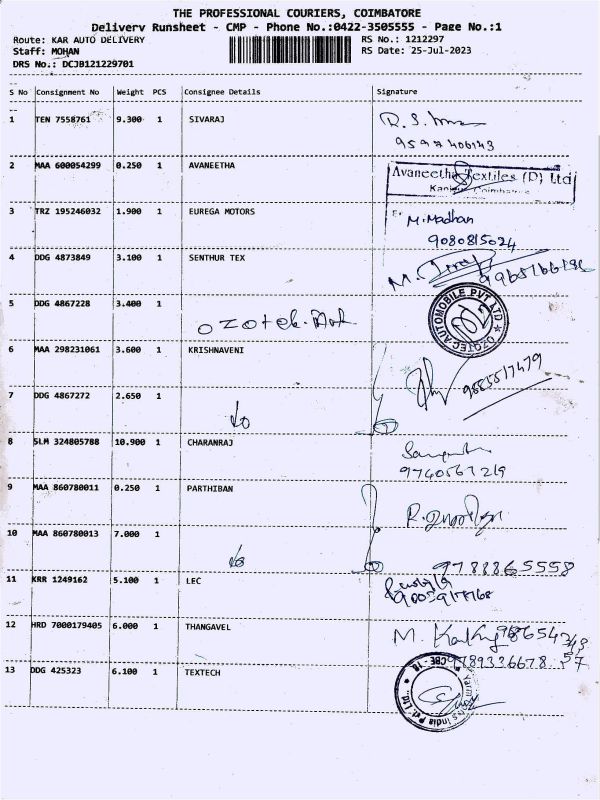 THE PROFESSIONAL COURIERS, COIMBATORE
Delivery Runsheet - CMP - Phone No.:0422-3505555 - Page No.:1
Route: KAR AUTO DELIVERY RS No.: 1212297
Staff: MOHAN RS Date: 25-Jul-2023
DRS No.: DCJB121229701
S No Consignment No Weight PCS Consignee Details Signature
1 TEN 7558761 9.300 1 SIVARAJ
2 MAA 600054299 0.250 1 AVANEETHA
Avaneetha Textiles (P) Ltd
3 TRZ 195246032 1.900 1 EUREGA MOTORS M.Madhan
9080815024
4 DDG 4873849 3.100 1 SENTHUR TEX
5 DDG 4867228 3.400 1
OZOTEC AUTOMOBILE PVT LTD
6 MAA 298231061 3.600 1 KRISHNAVENI
7 DDG 4867272 2.650 1
8 SLM 324805788 10.900 1 CHARANRAJ
9 MAA 860780011 0.250 1 PARTHIBAN
10 MAA 860780013 7.000 1
9788865558
11 KRR 1249162 5.100 1 LEC
12 HRD 7000179405 6.000 1 THANGAVEL
9789336678
13 DDG 425323 6.100 1 TEXTECH